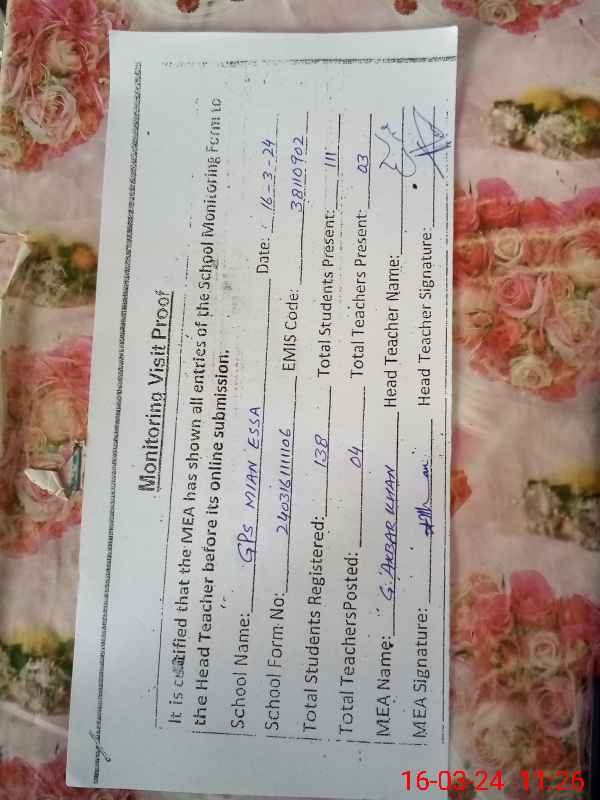 Monitoring Visit Proof
It is certified that the MEA has shown all entries of the School Monitoring Form to
the Head Teacher before its online submission.
School Name: GPS MIAN ESSA Date: 16-3-24
School Form No: 240316111106 EMIS Code: 38110902
Total Students Registered: 138 Total Students Present: 111
Total TeachersPosted: 04 Total Teachers Present: 03
MEA Name: G. AKBAR KHAN Head Teacher Name:
MEA Signature: Head Teacher Signature:
16-03-24 11:26